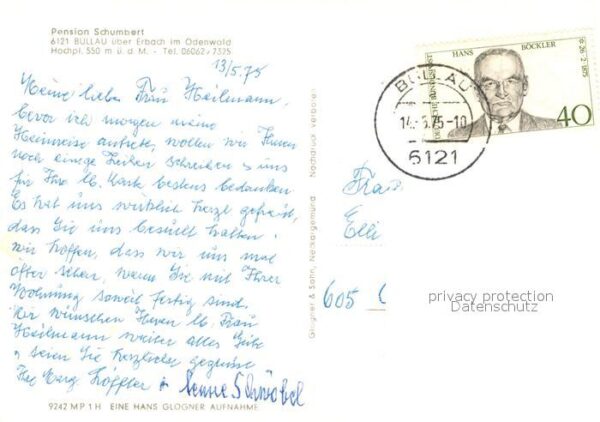 Pension Schumbert
6121 BULLAU über Erbach im Odenwald
Hochpl. 550 m ü. d. M. - Tel. 06062/7325
13/5.75
Meine liebe Frau Heilmann,
bevor ich morgen meine
Heimreise antrete, wollen wir Ihnen
noch einige Zeilen schreiben u. uns
für Ihre lb. Karte bestens bedanken.
Es hat uns wirklich herzl. gefreut,
dass Sie uns besucht hatten.
Wir hoffen, dass wir uns mal
öfter sehen, wenn Sie mit Ihrer
Wohnung soweit fertig sind.
Wir wünschen Ihnen lb. Frau
Heilmann weiter alles Gute
u. seien Sie herzlichst gegrüsst
Ihre
9242 MP 1 H EINE HANS GLOGNER AUFNAHME
Glogner & Sohn, Neckargemünd Nachdruck verboten
DEUTSCHE BUNDESPOST
HANS BÖCKLER
* 26·2·1875
40
BULLAU
14.-5.75-10
6121
Frau
Elli
605
privacy protection
Datenschutz